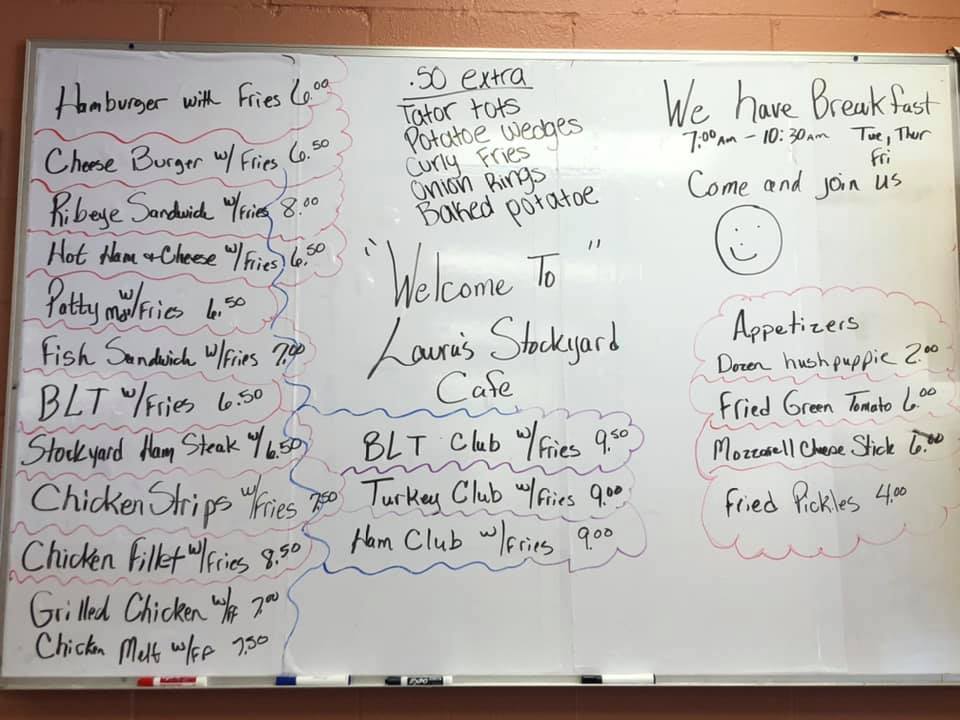 Hamburger with Fries 6.00
Cheese Burger w/ Fries 6.50
Ribeye Sandwich w/Fries 8.00
Hot Ham & Cheese w/Fries 6.50
Patty Melt w/Fries 6.50
Fish Sandwich w/Fries 7.00
BLT w/Fries 6.50
Stockyard Ham Steak w/ 6.50
Chicken Strips w/Fries 7.50
Chicken Fillet w/Fries 8.50
Grilled Chicken w/FF 7.00
Chicken Melt w/FF 7.50
.50 extra
Tator tots
Potatoe wedges
Curly Fries
Onion Rings
Baked potatoe
"Welcome To"
Laura's Stockyard
Cafe
BLT Club w/Fries 9.50
Turkey Club w/Fries 9.00
Ham Club w/Fries 9.00
We have Breakfast
7:00 AM - 10:30 AM Tue, Thur
Fri
Come and join us
Appetizers
Dozen hushpuppie 2.00
Fried Green Tomato 6.00
Mozzarell Cheese Stick 6.00
Fried Pickles 4.00
EXPO